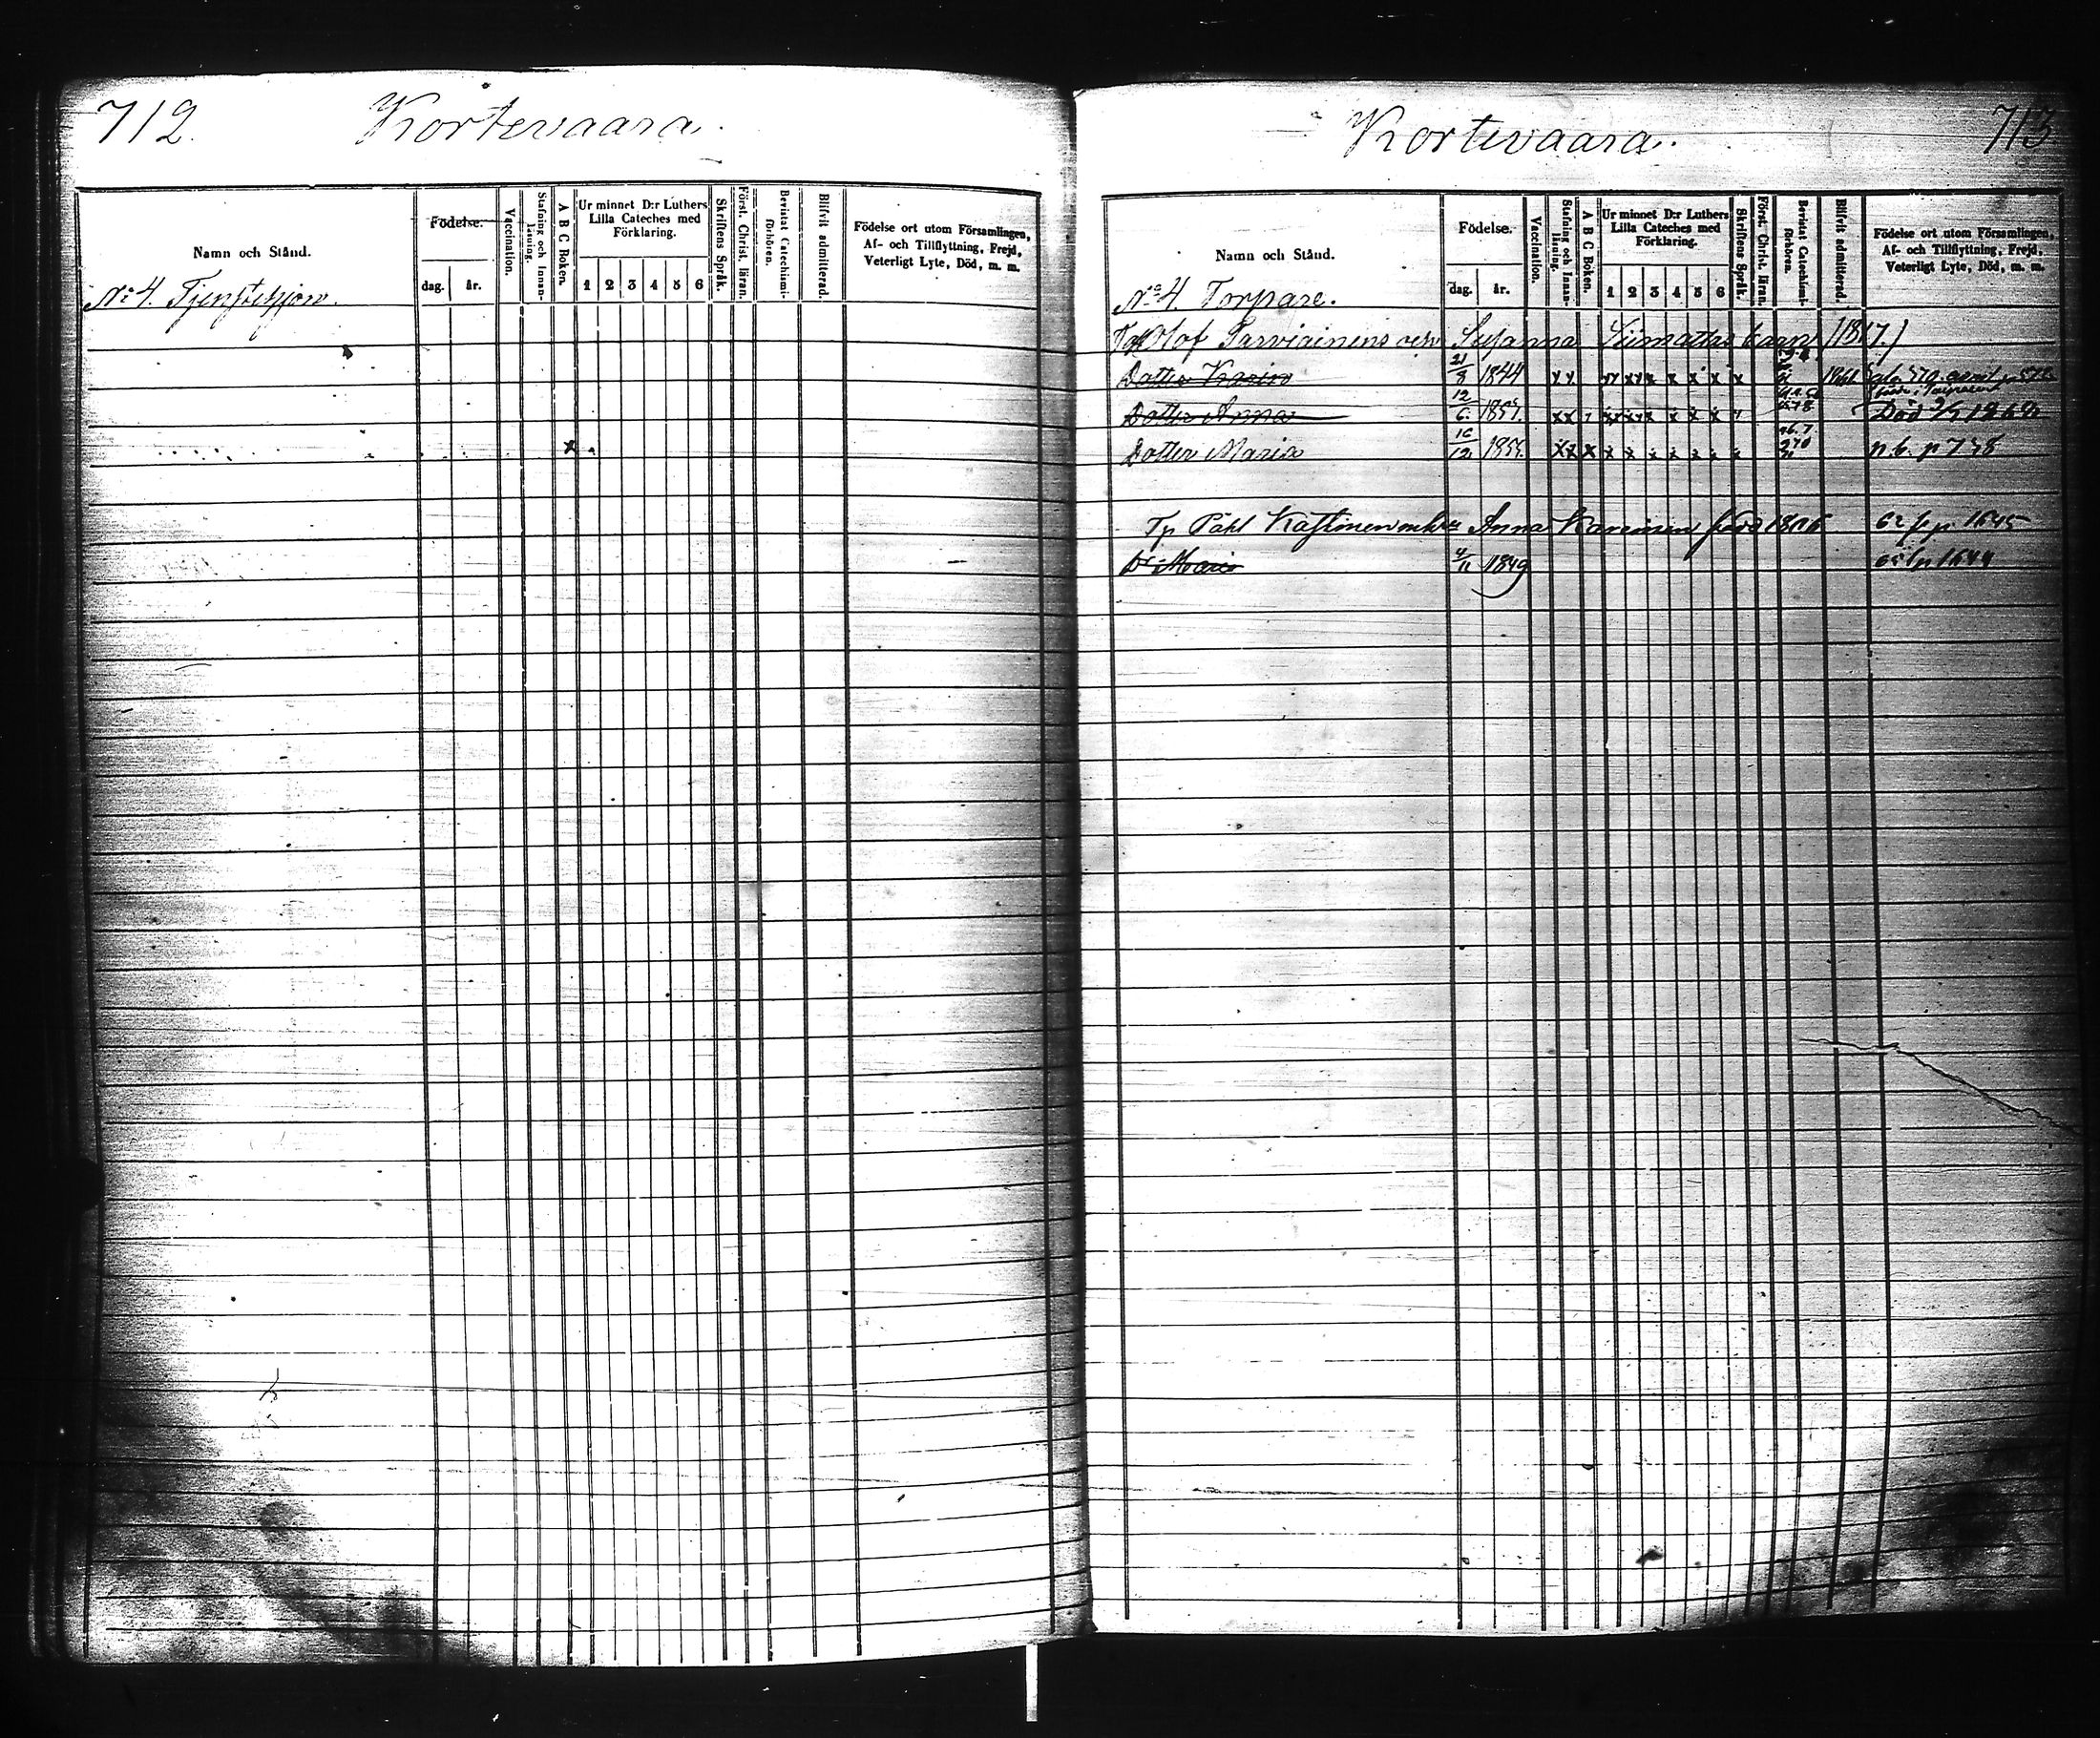 712. Kortevaara.
Namn och Stånd.
Födelse.
dag. år.
Vaccination.
Stafning och Innanläsning.
A B C Boken.
Ur minnet D:r Luthers Lilla Cateches med Förklaring.
1 2 3 4 5 6
Skriftens Språk.
Först. Christ. läran.
Bevistat Catechismiförhören.
Blifvit admitterad.
Födelse ort utom Församlingen, Af- och Tillflyttning, Frejd, Veterligt Lyte, Död, m. m.
N:o 4. Tjenstehjon.
Kortevaara. 713
Namn och Stånd.
Födelse.
dag. år.
Vaccination.
Stafning och Innanläsning.
A B C Boken.
Ur minnet D:r Luthers Lilla Cateches med Förklaring.
1 2 3 4 5 6
Skriftens Språk.
Först. Christ. läran.
Bevistat Catechismiförhören.
Blifvit admitterad.
Födelse ort utom Församlingen, Af- och Tillflyttning, Frejd, Veterligt Lyte, Död, m. m.
N:o 4. Torpare.
Olof Parviainens Susanna barn (1817.)
Dotter Karin 21/8 1844
Dotter Anna 12/6 1851. Död 1868
Dotter Maria 16/12 1855. n. b. p 738
Tp Påhl Anna 1806 62 p 1645
Dr Maria 4/11 1849